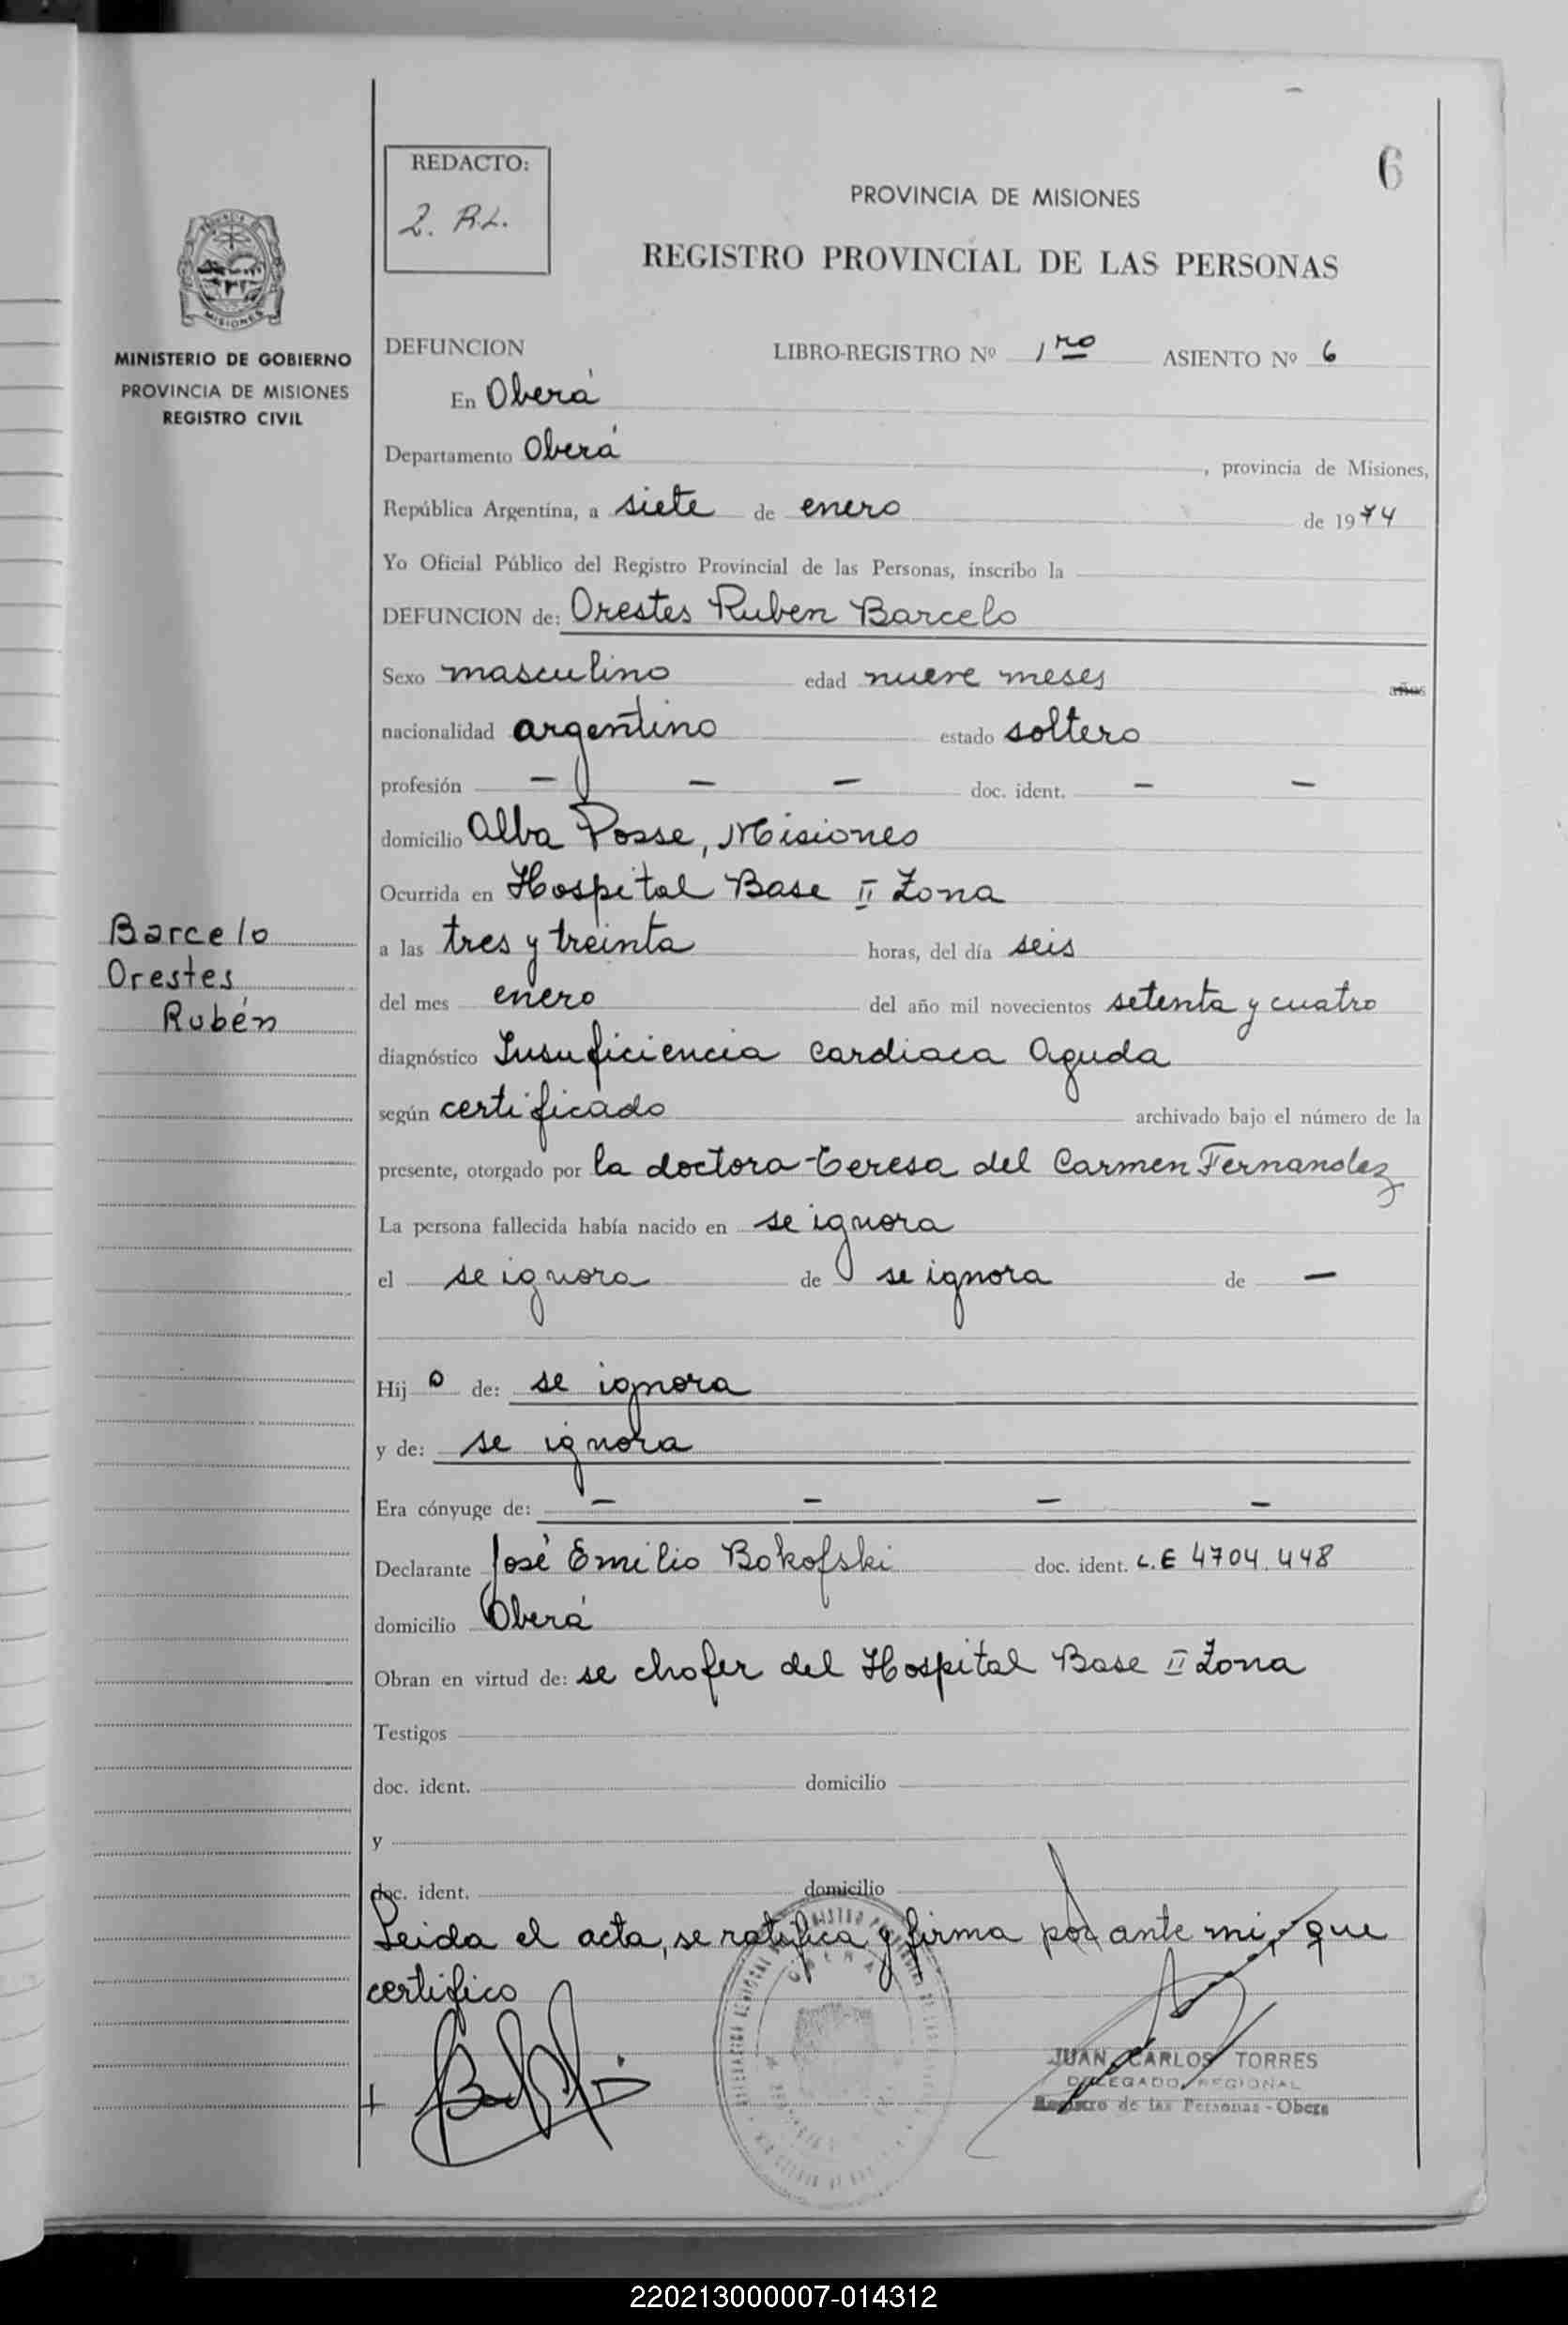 6
REDACTO:
2. R.L.
PROVINCIA DE MISIONES
REGISTRO PROVINCIAL DE LAS PERSONAS
MISIONES
MINISTERIO DE GOBIERNO
PROVINCIA DE MISIONES
REGISTRO CIVIL
DEFUNCION LIBRO-REGISTRO Nº 1ro ASIENTO Nº 6
En Oberá
Departamento Oberá, provincia de Misiones,
República Argentina, a siete de enero de 1974
Yo Oficial Público del Registro Provincial de las Personas, inscribo la
DEFUNCION de: Orestes Ruben Barcelo
Sexo masculino edad nueve meses años
nacionalidad argentino estado soltero
profesión - - - doc. ident. - -
domicilio Alba Posse, Misiones
Ocurrida en Hospital Base II Zona
Barcelo
Orestes
Rubén
a las tres y treinta horas, del día seis
del mes enero del año mil novecientos setenta y cuatro
diagnóstico Insuficiencia cardiaca aguda
según certificado archivado bajo el número de la
presente, otorgado por la doctora Teresa del Carmen Fernandez
La persona fallecida había nacido en se ignora
el se ignora de se ignora de -
Hij o de: se ignora
y de: se ignora
Era cónyuge de: - - - -
Declarante José Emilio Bokofski doc. ident. L.E 4704.448
domicilio Oberá
Obran en virtud de: se chofer del Hospital Base II Zona
Testigos
doc. ident. domicilio
y
doc. ident. domicilio
Leida el acta, se ratifica y firma por ante mi, que
certifico
JUAN CARLOS TORRES
DELEGADO REGIONAL
Registro de las Personas - Obera
220213000007-014312